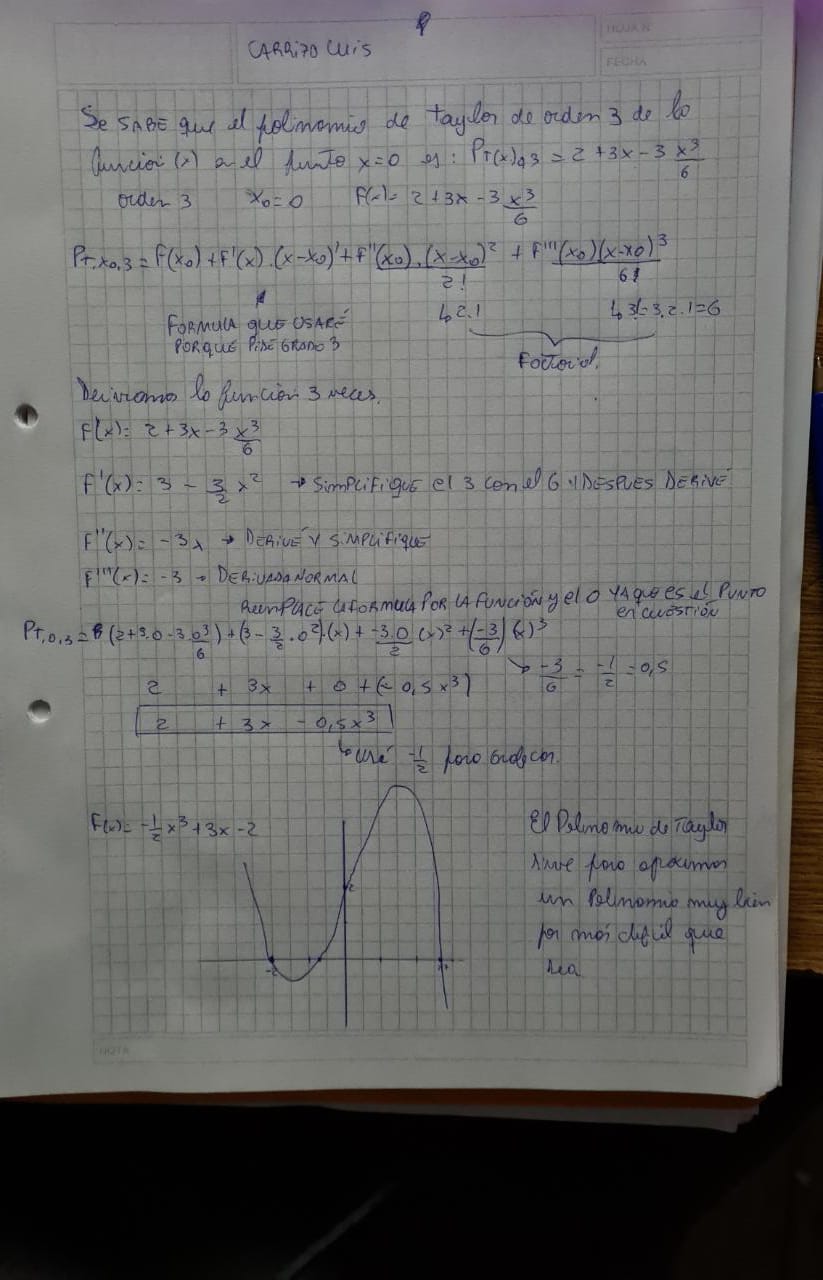 HOJA N
CARRIZO LUIS
FECHA
Se SABE que el polinomio de Taylor de orden 3 de la
función (x) en el punto x=0 es: PT(x)0,3 = 2 + 3x - 3 x³/6
orden 3 x₀=0 F(x)= 2+3x-3 x³/6
PT,x₀,3 = F(x₀) + F'(x).(x-x₀)' + F''(x₀).(x-x₀)²/2! + F'''(x₀)(x-x₀)³/6!
↳2.1 ↳3!=3.2.1=6
FORMULA QUE USARÉ
PORQUE PIDE GRADO 3
Factorial.
Derivamos la función 3 veces.
F(x)= 2+3x-3 x³/6
F'(x)= 3 - 3/2 x² → SimPLIFIQUE el 3 con el 6 Y DESPUES DERIVÉ
F''(x)= -3x → DERIVÉ Y SIMPLIFIQUE
F'''(x)= -3 → DERIVADA NORMAL
REEMPLACÉ LA FORMULA POR LA FUNCIÓN y el 0 YA que es el PUNTO
en CUESTIÓN
PT,0,3= (2+3.0-3.0³/6) + (3-3/2.0²).(x) + -3.0/2 (x)² + (-3/6)(x)³
↘ -3/6 = -1/2 = 0,5
2 + 3x + 0 + (-0,5x³)
2 + 3x - 0,5x³
↳ usé -1/2 para graficar.
F(x)= -1/2 x³+3x-2
2
-2
El Polinomio de Taylor
sirve para aproximar
un Polinomio muy bien
por más dificil que
sea
NOTA